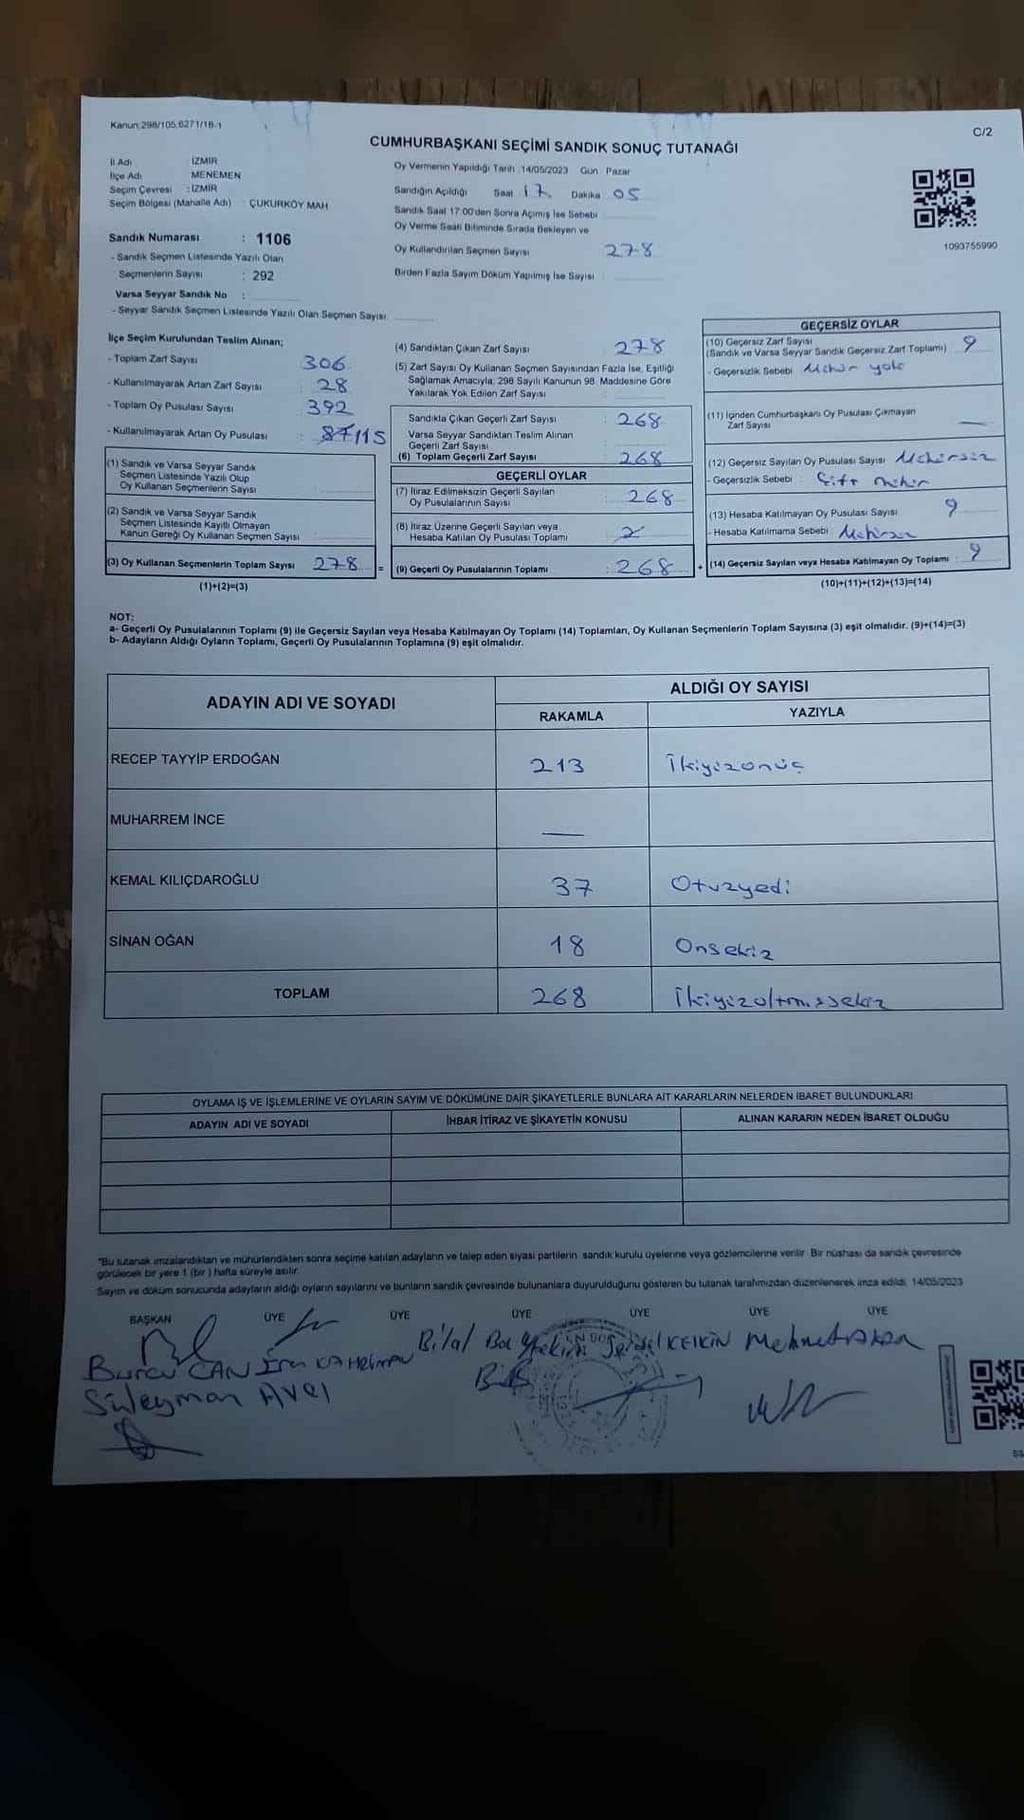 Kanun:298/105,6271/16-1
C/2
CUMHURBAŞKANI SEÇİMİ SANDIK SONUÇ TUTANAĞI
İl Adı : İZMİR
İlçe Adı : MENEMEN
Seçim Çevresi : İZMİR
Seçim Bölgesi (Mahalle Adı) : ÇUKURKÖY MAH
Sandık Numarası : 1106
- Sandık Seçmen Listesinde Yazılı Olan
Seçmenlerin Sayısı : 292
Varsa Seyyar Sandık No :
- Seyyar Sandık Seçmen Listesinde Yazılı Olan Seçmen Sayısı:
Oy Vermenin Yapıldığı Tarih 14/05/2023 Gün Pazar
Sandığın Açıldığı Saat 17 Dakika 05
Sandık Saat 17:00'den Sonra Açımış İse Sebebi
Oy Verme Saati Bitiminde Sırada Bekleyen ve
Oy Kullandırılan Seçmen Sayısı 278
Birden Fazla Sayım Döküm Yapılmış İse Sayısı :
1093755990
İlçe Seçim Kurulundan Teslim Alınan;
- Toplam Zarf Sayısı 306
- Kullanılmayarak Artan Zarf Sayısı : 28
- Toplam Oy Pusulası Sayısı 392
- Kullanılmayarak Artan Oy Pusulası :
(1) Sandık ve Varsa Seyyar Sandık
Seçmen Listesinde Yazılı Olup
Oy Kullanan Seçmenlerin Sayısı
(2) Sandık ve Varsa Seyyar Sandık
Seçmen Listesinde Kayıtlı Olmayan
Kanun Gereği Oy Kullanan Seçmen Sayısı
(3) Oy Kullanan Seçmenlerin Toplam Sayısı 278 =
(1)+(2)=(3)
(4) Sandıktan Çıkan Zarf Sayısı : 278
(5) Zarf Sayısı Oy Kullanan Seçmen Sayısından Fazla İse, Eşitliği
Sağlamak Amacıyla, 298 Sayılı Kanunun 98. Maddesine Göre
Yakılarak Yok Edilen Zarf Sayısı :
Sandıkta Çıkan Geçerli Zarf Sayısı : 268
Varsa Seyyar Sandıktan Teslim Alınan
Geçerli Zarf Sayısı
(6) Toplam Geçerli Zarf Sayısı : 268
GEÇERLİ OYLAR
(7) İtiraz Edilmeksizin Geçerli Sayılan
Oy Pusulalarının Sayısı : 268
(8) İtiraz Üzerine Geçerli Sayılan veya
Hesaba Katılan Oy Pusulası Toplamı :
(9) Geçerli Oy Pusulalarının Toplamı : 268 +
GEÇERSİZ OYLAR
(10) Geçersiz Zarf Sayısı 9
(Sandık ve Varsa Seyyar Sandık Geçersiz Zarf Toplamı)
- Geçersizlik Sebebi : Mühür yok
(11) İçinden Cumhurbaşkanı Oy Pusulası Çıkmayan
Zarf Sayısı —
(12) Geçersiz Sayılan Oy Pusulası Sayısı : Mühürsüz
- Geçersizlik Sebebi : Çift mühür
(13) Hesaba Katılmayan Oy Pusulası Sayısı 9
- Hesaba Katılmama Sebebi :
(14) Geçersiz Sayılan veya Hesaba Katılmayan Oy Toplamı : 9
(10)+(11)+(12)+(13)=(14)
NOT:
a- Geçerli Oy Pusulalarının Toplamı (9) ile Geçersiz Sayılan veya Hesaba Katılmayan Oy Toplamı (14) Toplamları, Oy Kullanan Seçmenlerin Toplam Sayısına (3) eşit olmalıdır. (9)+(14)=(3)
b- Adayların Aldığı Oyların Toplamı, Geçerli Oy Pusulalarının Toplamına (9) eşit olmalıdır.
ADAYIN ADI VE SOYADI
ALDIĞI OY SAYISI
RAKAMLA YAZIYLA
RECEP TAYYİP ERDOĞAN 213 İkiyüzonüç
MUHARREM İNCE —
KEMAL KILIÇDAROĞLU 37 Otuzyedi
SİNAN OĞAN 18 Onsekiz
TOPLAM 268 İkiyüzaltmışsekiz
OYLAMA İŞ VE İŞLEMLERİNE VE OYLARIN SAYIM VE DÖKÜMÜNE DAİR ŞİKAYETLERLE BUNLARA AİT KARARLARIN NELERDEN İBARET BULUNDUKLARI
ADAYIN ADI VE SOYADI İHBAR İTİRAZ VE ŞİKAYETİN KONUSU ALINAN KARARIN NEDEN İBARET OLDUĞU
*Bu tutanak imzalandıktan ve mühürlendikten sonra seçime katılan adayların ve talep eden siyasi partilerin sandık kurulu üyelerine veya gözlemcilerine verilir. Bir nüshası da sandık çevresinde
görülecek bir yere 1 (bir ) hafta süreyle asılır.
Sayım ve döküm sonucunda adayların aldığı oyların sayılarını ve bunların sandık çevresinde bulunanlara duyurulduğunu gösteren bu tutanak tarafımızdan düzenlenerek imza edildi. 14/05/2023
BAŞKAN ÜYE ÜYE ÜYE ÜYE ÜYE ÜYE
Burcu CAN
Bilal
KESKİN Mehmet
Süleyman